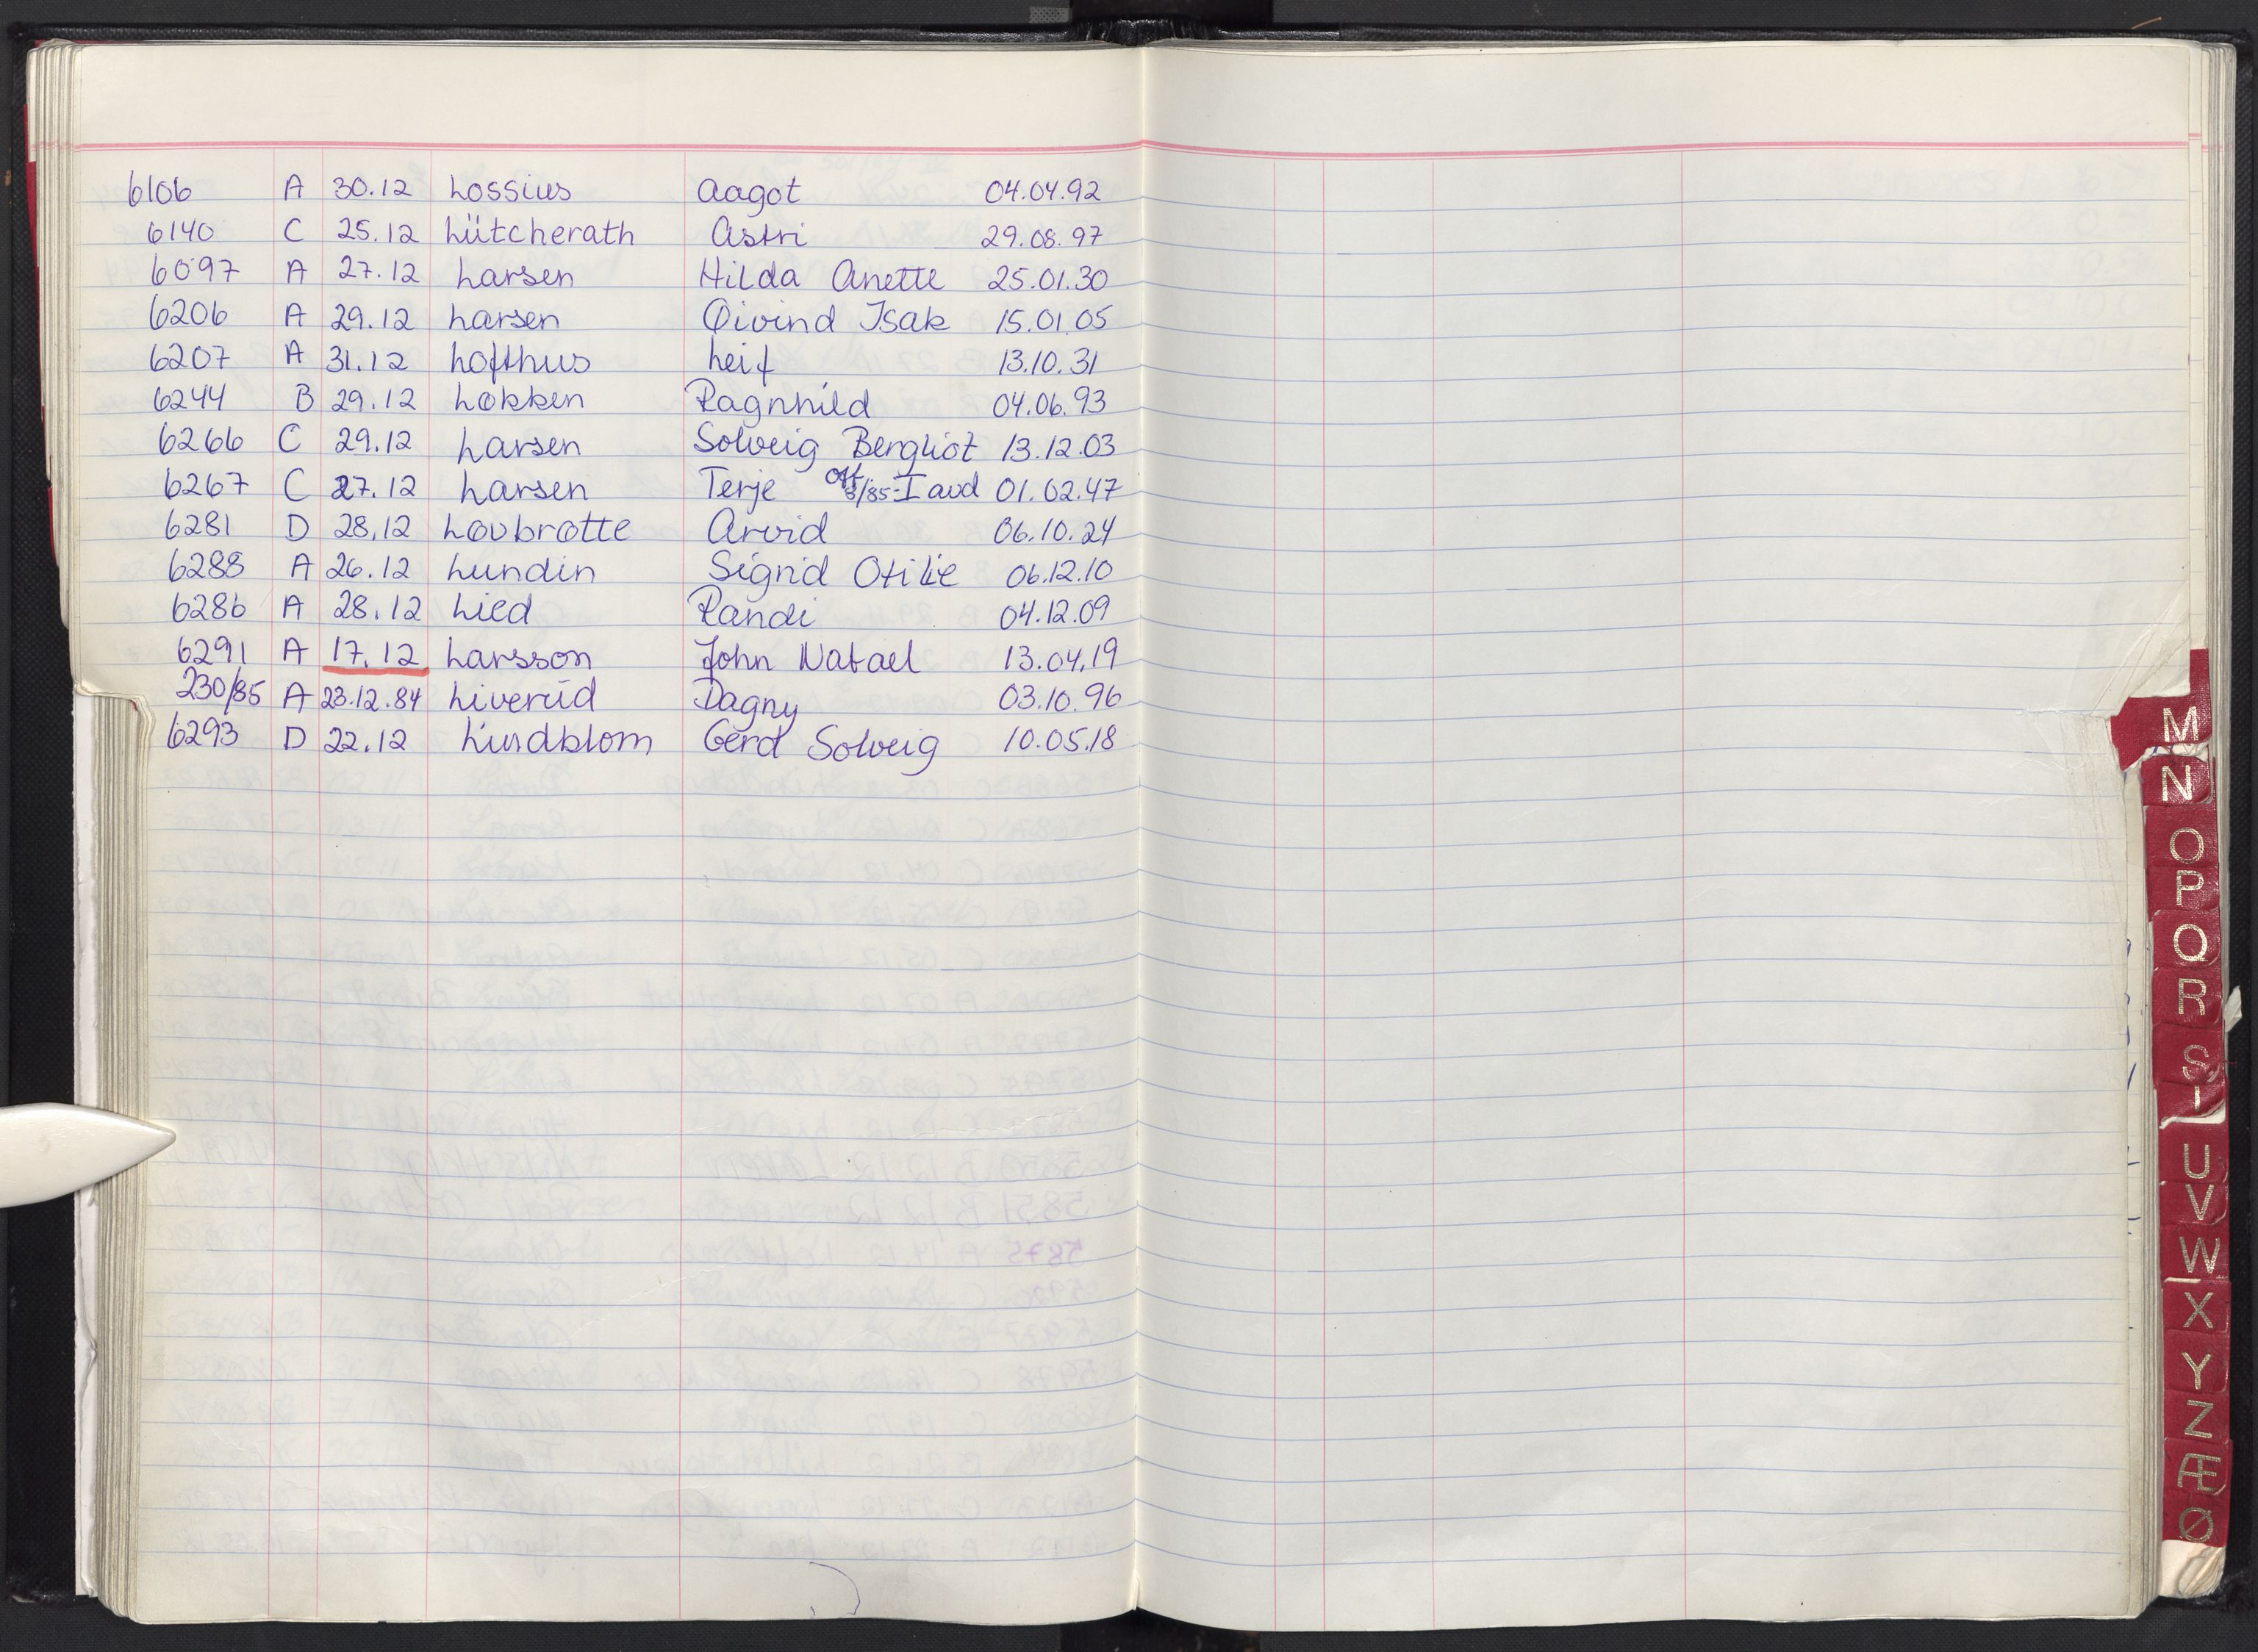 6106 A 30.12 Lossius Aagot 04.04.92
6140 C 25.12 Lütcherath Astri 29.08.97
6097 A 27.12 Larsen Hilda Anette 25.01.30
6206 A 29.12 Larsen Øivind Isak 15.01.05
6207 A 31.12 Lofthus Leif 13.10.31
6244 B 29.12 Løkken Ragnhild 04.06.93
6266 C 29.12 Larsen Solveig Bergliot 13.12.03
6267 C 27.12 Larsen Terje Off 3/85-I avd 01.02.47
6281 D 28.12 Løvbrøtte Arvid 06.10.24
6288 A 26.12 Lundin Sigrid Otilie 06.12.10
6286 A 28.12 Lied Randi 04.12.09
6291 A 17.12 Larsson John Natael 13.04.19
230/85 A 23.12.84 Liverud Dagny 03.10.96
6293 D 22.12 Lindblom Gerd Solveig 10.05.18
M
N
O
P
Q
R
S
T
U
V
W
X
Y
Z
Æ
Ø